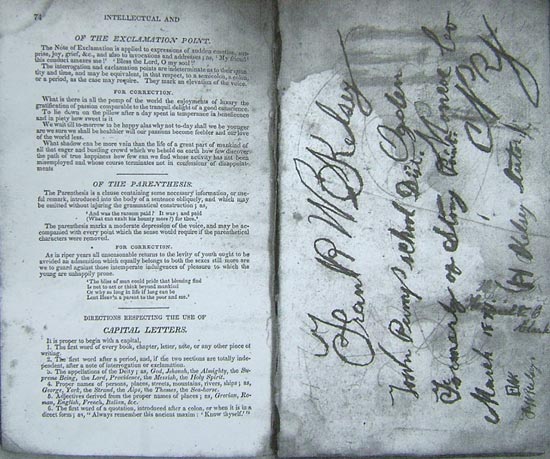 74 INTELLECTUAL AND
OF THE EXCLAMATION POINT.
The Note of Exclamation is applied to expressions of sudden emotion, sur-
prise, joy, grief, &c., and also to invocations and addresses; as, 'My friend!
this conduct amazes me!' 'Bless the Lord, O my soul!'
The interrogation and exclamation points are indeterminate as to their quan-
tity and time, and may be equivalent, in that respect, to a semicolon, a colon,
or a period, as the case may require. They mark an elevation of the voice.
FOR CORRECTION.
What is there in all the pomp of the world the enjoyments of luxury the
gratification of passion comparable to the tranquil delight of a good conscience
To lie down on the pillow after a day spent in temperance in beneficence
and in piety how sweet is it
We wait till to-morrow to be happy alas why not to-day shall we be younger
are we sure we shall be healthier will our passions become feebler and our love
of the world less.
What shadow can be more vain than the life of a great part of mankind of
all that eager and bustling crowd which we behold on earth how few discover
the path of true happiness how few can we find whose activity has not been
misemployed and whose course terminates not in confessions of disappoint-
ments
OF THE PARENTHESIS.
The Parenthesis is a clause containing some necessary information, or use-
ful remark, introduced into the body of a sentence obliquely, and which may
be omitted without injuring the grammatical construction; as,
'And was the ransom paid? It was; and paid
(What can exalt his bounty more?) for thee.'
The parenthesis marks a moderate depression of the voice, and may be ac-
companied with every point which the sense would require if the parenthetical
characters were removed.
FOR CORRECTION.
As in riper years all unseasonable returns to the levity of youth ought to be
avoided an admonition which equally belongs to both the sexes still more are
we to guard against those intemperate indulgences of pleasure to which the
young are unhappily prone.
'The bliss of man could pride that blessing find
Is not to act or think beyond mankind
Or why so long in life if long can be
Lent Heav'n a parent to the poor and me.'
DIRECTIONS RESPECTING THE USE OF
CAPITAL LETTERS.
It is proper to begin with a capital,
1. The first word of every book, chapter, letter, note, or any other piece of
writing.
2. The first word after a period, and, if the two sections are totally inde-
pendent, after a note of interrogation or exclamation.
3. The appellations of the Deity; as, God, Jehovah, the Almighty, the Su-
preme Being, the Lord, Providence, the Messiah, the Holy Spirit.
4. Proper names of persons, places, streets, mountains, rivers, ships; as,
George, York, the Strand, the Alps, the Thames, the Sea-horse.
5. Adjectives derived from the proper names of places; as, Grecian, Ro-
man, English, French, Italian, &c.
6. The first word of a quotation, introduced after a colon, or when it is in a
direct form; as, "Always remember this ancient maxim: 'Know thyself.'"
Frank W B Kelsey
School
Formerly of Stony Point